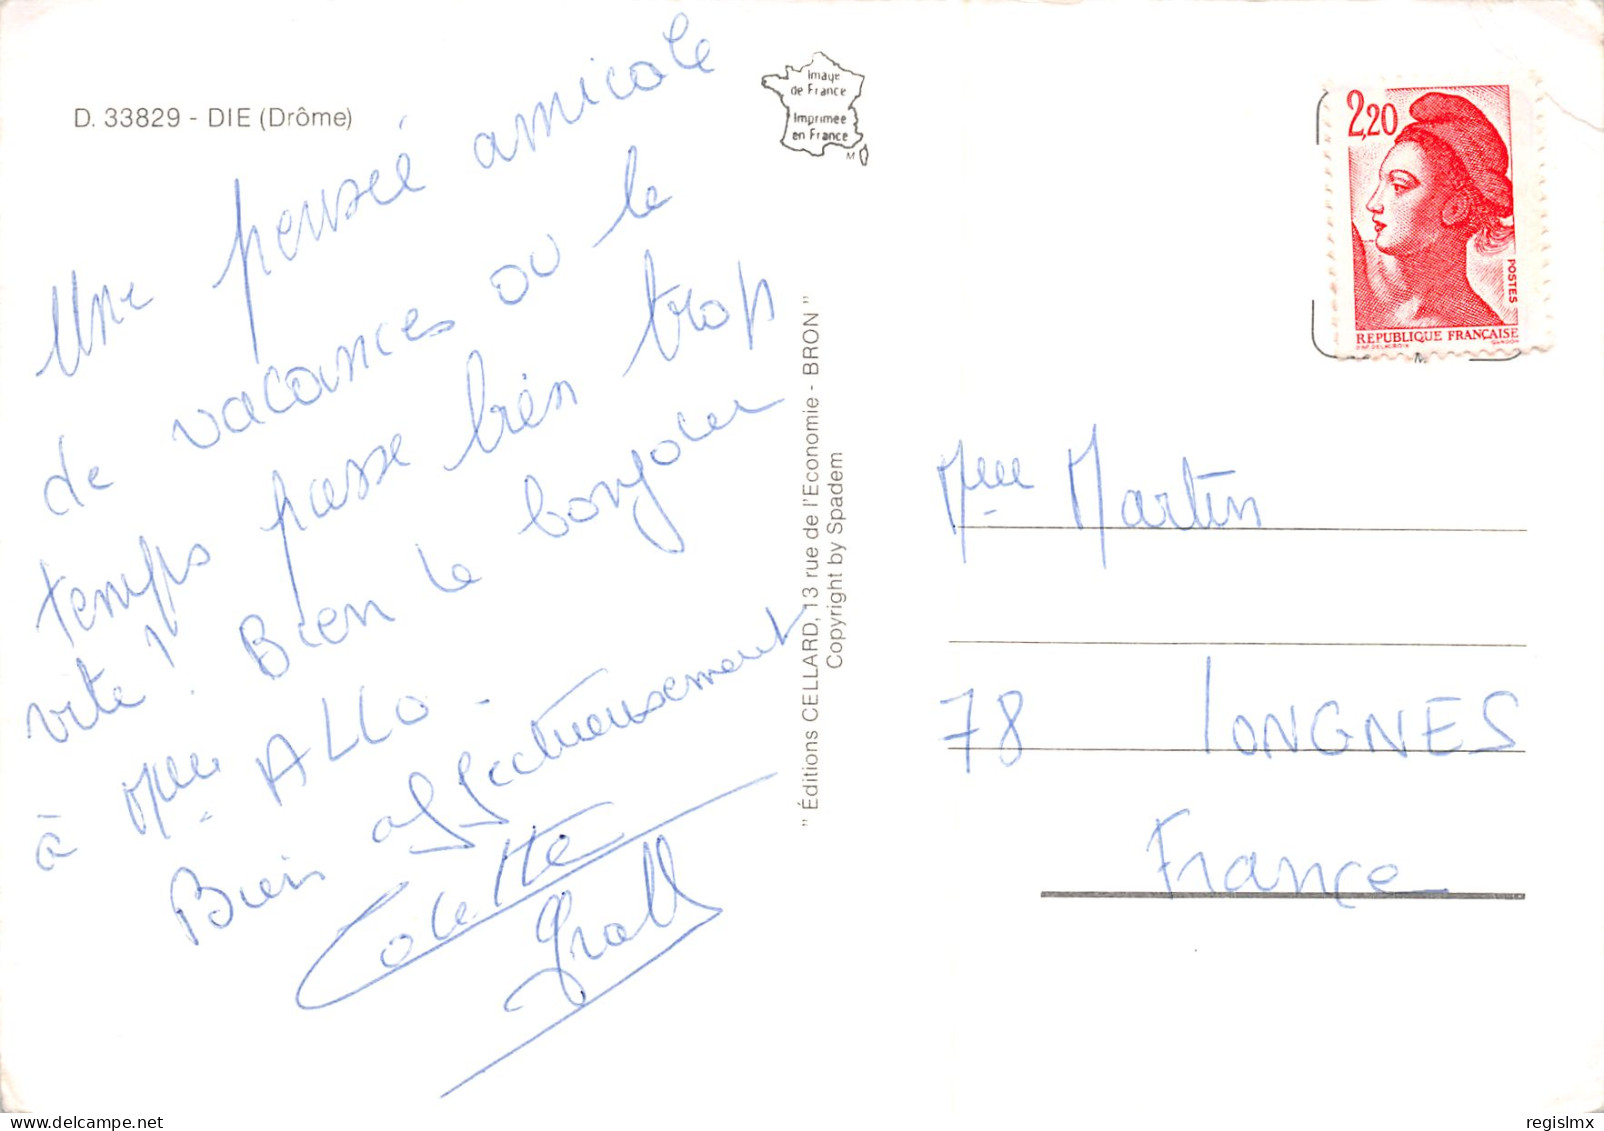 D. 33829 - DIE (Drôme)
Image
de France
Imprimée
en France
M
Une pensée amicale
de vacances ou le
temps passe bien trop
vite ! Bien le bonjour
à Mme ALLO -
Bien affectueusement
Colette
" Éditions CELLARD, 13 rue de l'Economie - BRON "
Copyright by Spadem
2,20
POSTES
REPUBLIQUE FRANÇAISE
D'AP. DELACROIX GANDON
M
Mme Martin
78 LONGNES
France
regislmx